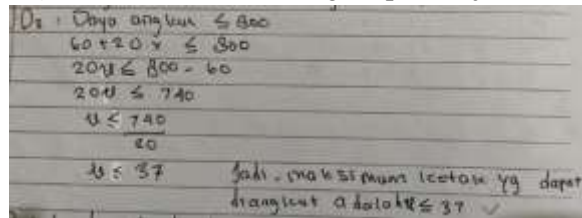 D₂ : Daya angkut ≤ 800
60 + 20 x ≤ 800
20x ≤ 800 - 60
20x ≤ 740
x ≤ 740
20
x ≤ 37 Jadi, maksimum kotak yg dapat
diangkut adalah x ≤ 37 ✓